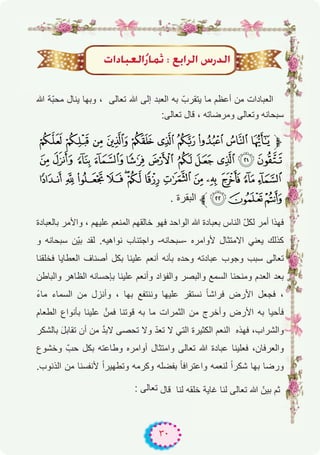 الدرس الرابع : ثمارُ العبادات
العبادات من أعظم ما يتقربّ به العبد إلى الله تعالى ، وبها ينال محبّة الله
سبحانه وتعالى ومرضاته ، قال تعالى:
﴿ يَٰٓأَيُّهَا ٱلنَّاسُ ٱعْبُدُوا۟ رَبَّكُمُ ٱلَّذِى خَلَقَكُمْ وَٱلَّذِينَ مِن قَبْلِكُمْ لَعَلَّكُمْ
تَتَّقُونَ ﴿٢١﴾ ٱلَّذِى جَعَلَ لَكُمُ ٱلْأَرْضَ فِرَٰشًا وَٱلسَّمَآءَ بِنَآءً وَأَنزَلَ مِنَ
ٱلسَّمَآءِ مَآءً فَأَخْرَجَ بِهِۦ مِنَ ٱلثَّمَرَٰتِ رِزْقًا لَّكُمْ ۖ فَلَا تَجْعَلُوا۟ لِلَّهِ أَندَادًا
وَأَنتُمْ تَعْلَمُونَ ﴿٢٢﴾ ﴾ البقرة .
فهذا أمر لكلّ الناس بعبادة الله الواحد فهو خالقهم المنعم عليهم ، والأمر بالعبادة
كذلك يعني الامتثال لأوامره –سبحانه– واجتناب نواهيه. لقد بيّن سبحانه و
تعالى سبب وجوب عبادته وحده بأنه أنعم علينا بكل أصناف العطايا فخلقنا
بعد العدم ومنحنا السمع والبصر والفؤاد وأنعم علينا بإحسانه الظاهر والباطن
، فجعل الأرض فراشاً نستقر عليها وننتفع بها ، وأنزل من السماء ماءً
فأحيا به الأرض وأخرج من الثمرات ما به قوتنا فمنّ علينا بأنواع الطعام
والشراب، فهذه النعم الكثيرة التي لا تعدّ ولا تحصى لابدّ من أن تقابل بالشكر
والعرفان، فعلينا عبادة الله تعالى وامتثال أوامره وطاعته بكل حبّ وخشوع
ورضا بها شكراً لنعمه واعترافاً بفضله وكرمه وتطهيراً لأنفسنا من الذنوب.
ثم بينّ الله تعالى لنا غاية خلقه لنا قال تعالى :
٣٠